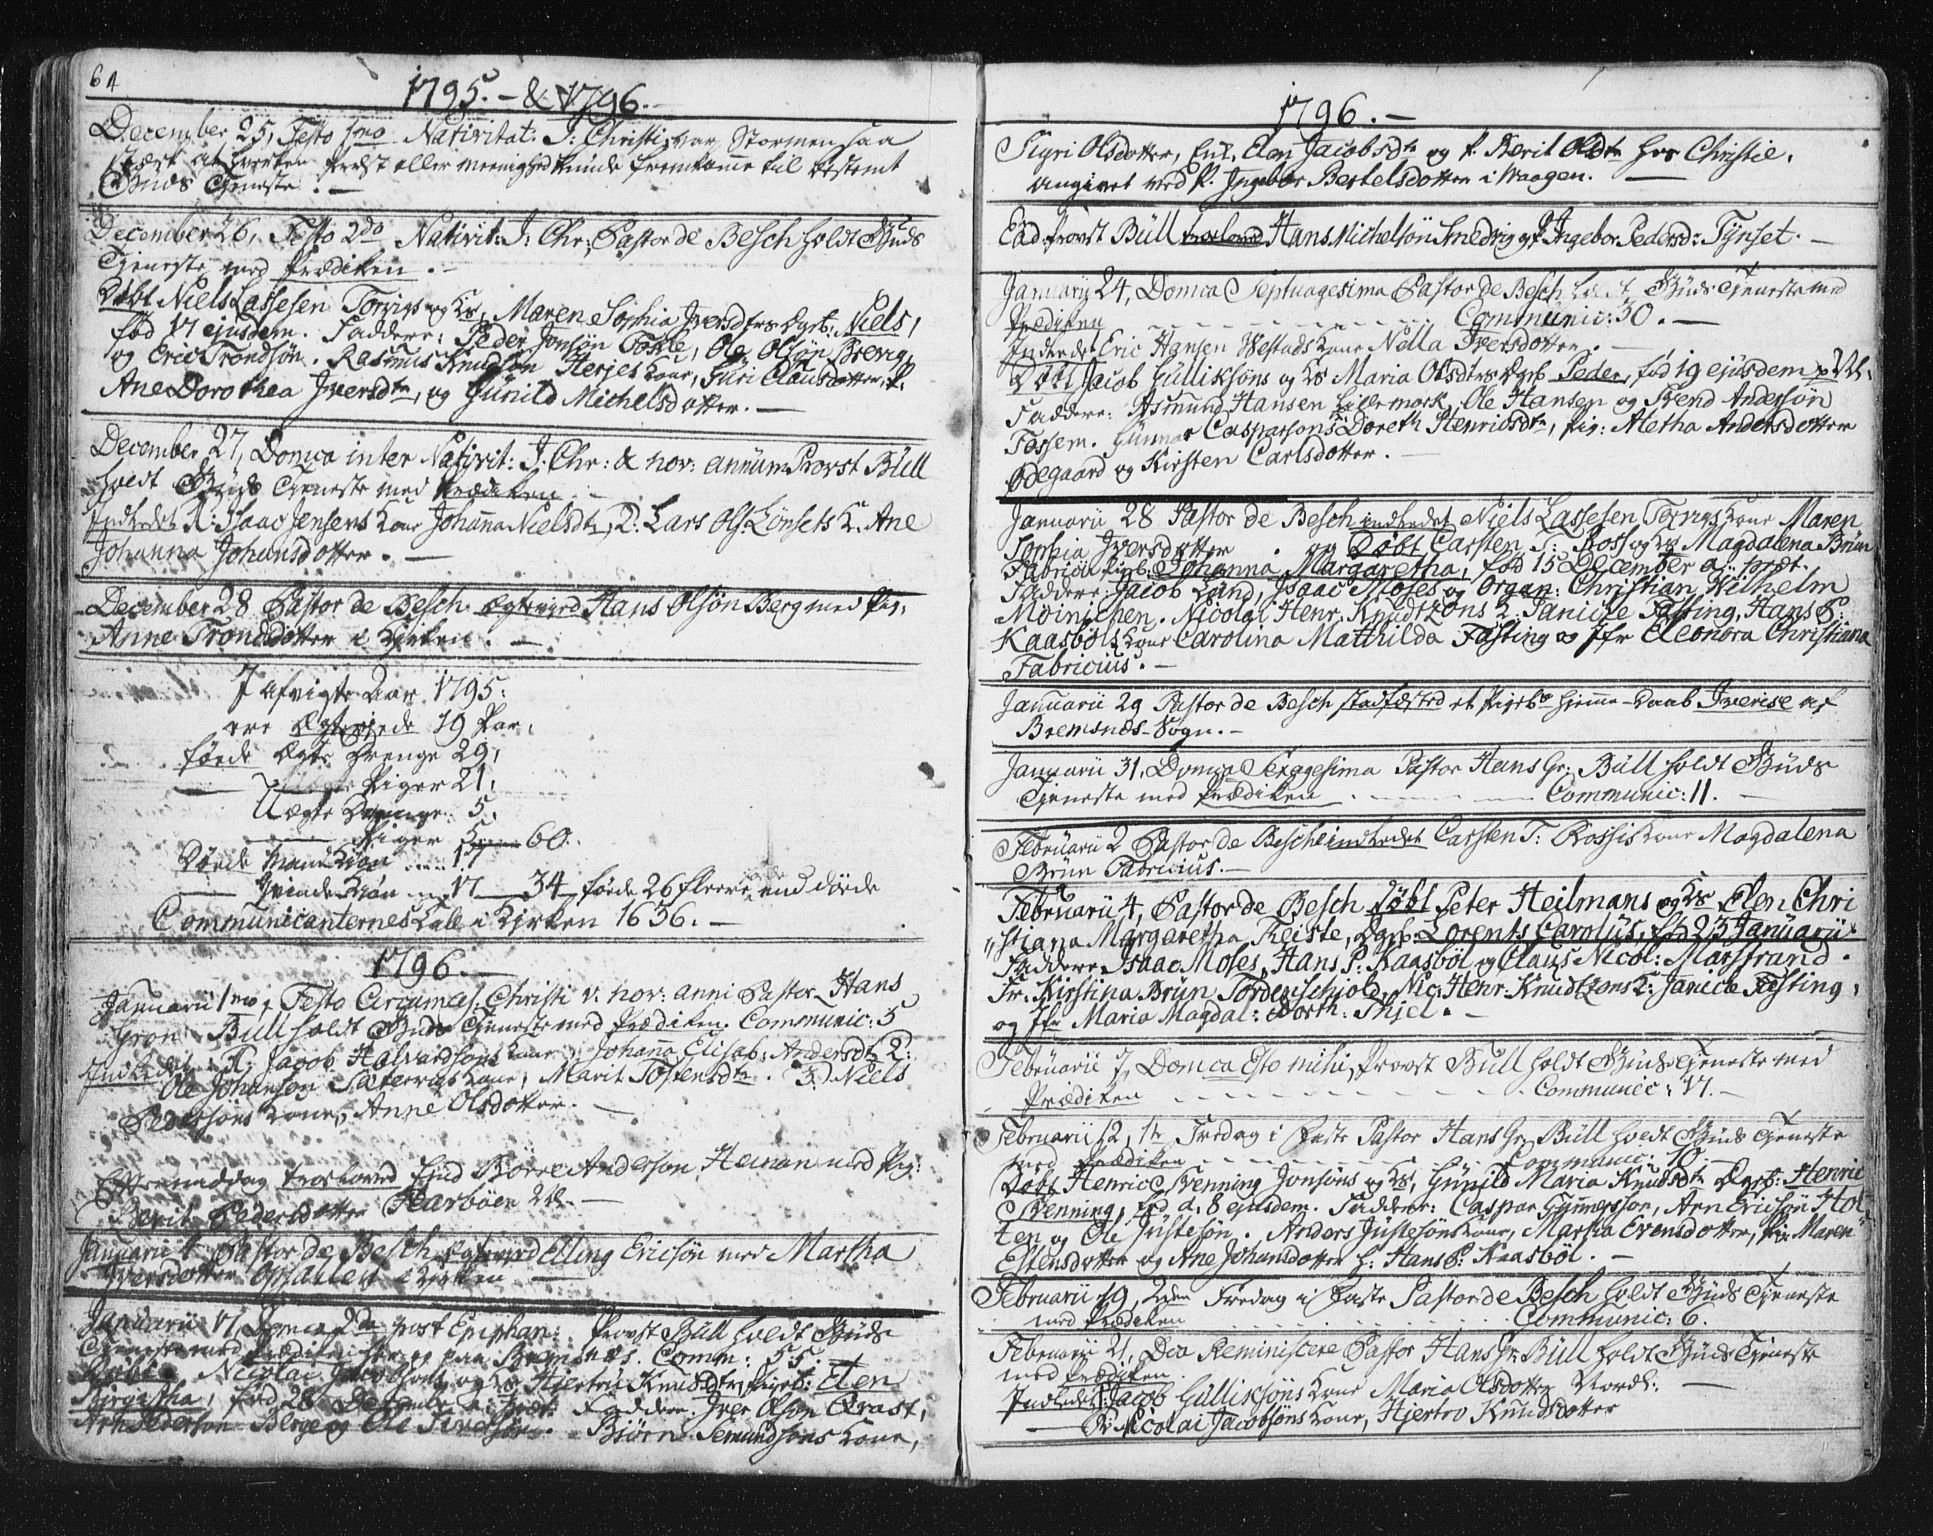 64
1795. - & 1796.
December 25, Festo 1mo Nativitat: J: Christi, var Stormen saa
stærk at hverken Præst eller meenighed kunde fremkomme til bestemt
Guds Tjeneste. -
December 26, Festo 2do Nativit: J: Chr: Pastor de Besch holdt Guds
Tjeneste med Prædiken. -
Døbt Niels Lassesen Torvigs og Ks, Maren Sophia Iversdtrs Dgrb: Niels,
fød 17 ejusdem. Faddere: Peder Jonsøn Fosne, Ole Olsøn Brevig,
og Eric Trondsøn. Rasmus Knudsøn Herjes Kone, Guri Clausdotter, P.
Ane Dorothea Iversdtr, og Gunild Michelsdotter. -
December 27, Domca inter Nativit: J: Chr: & nov: annum Provst Bull
holdt Guds Tjeneste med Prædiken. -
Indledet 1: Isaac Jensens Kone Johanna Nielsdtr, 2: Lars Ols: Lønsets K. Ane
Johanna Johansdotter. -
December 28 Pastor de Besch Ægtevied Hans Olsøn Berg med Pig:
Anne Trondsdotter i Kirken. -
I afvigte Aar 1795:
ere Ægteviede 19 Par,
fødde Ægte Drenge 29,
Ægte Piger 21,
Uægte Drenge 5,
Piger 5 60.
Døede Mandkiøn 17
Qvindekiøn 17 34 fødde 26 fleere end døede
Communicanternes Tall i Kirken 1636. -
1796. -
Januarii 1mo, Festo Circumcis: Christi v: nov: anni Pastor Hans
Grøn Bull holdt Guds Tjeneste med Prædiken. Communic: 5
Indledet 1) Jacob Halvardsøns Kone, Johanna Elisab: Andersdtr 2:
Ole Johansøn Sætervigs Kone, Marit Tostensdtr. 3) Niels
Pedersøns Kone, Anne Olsdotter. -
Eftermiddag troloved Eind Børre Andersøn Heinan med Pig:
Berit Pedersdotter
Januarii Pastor de Besch Ægteviedd Elling Ericsøn med Martha
Iversdotter i Kirken -
Januarii 17, Domca 2da post Epiphan: Provst Bull holdt Guds
Tjeneste med Prædiken her og paa Bremsnes. Comm: 55. -
Døbt Nicolai Jacobsøns og Ks Hjertru Knudsdtrs Pigeb: Elen
Birgitha, fød 28 Decembr a: præt: Faddere: Iver Olsøn Qvast,
Arn Pedersøn Berge og Ole Siversøn. Biørn Semundsøns Kone,
1796. -
Sigri Olsdotter, Enk. Elen Jacobsdtr og P. Berit Olsdtr hos Christie.
Angivet med P. Ingebor Bertelsdotter i Vaagen. -
Ead: Provst Bull trolovede Hans Michelsøn Smedvig og P. Ingebor Pedersd: Tynset. -
Januarii 24, Domca Septuagesima Pastor de Besch holdt Guds Tjeneste med
Prædiken Communic: 30. -
Indledet Eric Hansen Vestads Kone Nella Iversdotter. -
Døbt Jacob Gulliksøns og Ks Maria Olsdtrs Dgrb Peder, fød 19 ejusdem
Faddere: Asmund Hansen Lillemork, Ole Hansen og Svend Andersøn
Fossem. Gunnar Caspersøns Doreth Henricsdtr, Pig: Aletha Andersdotter
Ødegaard og Kirsten Carlsdotter. -
Januarii 28 Pastor de Besch indledet Niels Lassesen Torvigs Kone Maren
Sophia Iversdotter. og Døbt Carsten T: Ross og Ks Magdalena Brun
Fabricii Pigb. Johanna Margaretha, fød 15 December a: præt.
Faddere: Jacob Lund, Isaac Moses og Organ: Christian Wilhelm
Moinichen. Nicolai Henr. Knudtzons K. Janicke Fasting, Hans P:
Kaasbøls Kone Carolina Mathilda Fasting og Jfr Eleonora Christiana
Fabricius. -
Januarii 29 Pastor de Besch stadfæsted et Pigeb. Hjemme-Daab Iverise af
Bremsnæs-Sogn. -
Januarii 31, Domca Sexagesima Pastor Hans Gr: Bull holdt Guds
Tjeneste med Prædiken Communic: 11. -
Februarii 2 Pastor de Besch indledet Carsten T: Rossis Kone Magdalena
Brun Fabricius. -
Februarii 4, Pastor de Besch døbt Peter Heilmans og Ks Elen Chri
stiana Margaretha Reiste, Dgrb: Lorents Carolus, fød 23 Januarii.
Faddere, Isaac Moses, Hans P: Kaasbøl og Claus Nicol: Marstrand.
Fr. Kirstina Brun Tordenschiold, Nic: Henr Knudtzons K: Janica Fasting,
og Jfr Maria Magdal: Dorth: Thjel. -
Februarii 7, Domca Esto mihi, Provst Bull holdt Guds Tjeneste med
Prædiken Communic: 17. -
Februarii 12, 1te Fredag i Faste Pastor Hans Gr. Bull holdt Guds Tjeneste
med Prædiken Communic: 10. -
Døbt Henric Svenning Jonsøns og Ks, Gunild Maria Knudsdtr Dgrb: Henric
Svenning, fød d. 8 ejusdem. Faddere: Caspar Gunnersøn, Arn Ericsøn Hol
ten og Ole Justesøn. Anders Justesøns Kone, Martha Evensdotter, Pig: Maren
Estensdotter og Ane Johansdotter h: Hans P: Kaasbøl. -
Februarii 19, 2den Fredag i Faste Pastor de Besch holdt Guds Tjeneste
med Prædiken Communic: 6.
Februarii 21, Dca Reminiscere Pastor Hans Gr: Bull holdt Guds Tjeneste
med Prædiken.
Indledet 1: Jacob Gulliksøns Kone Maria Olsdotter Nordl: -
2: Nicolai Jacobsøns Kone, Hjertro Knudsdotter